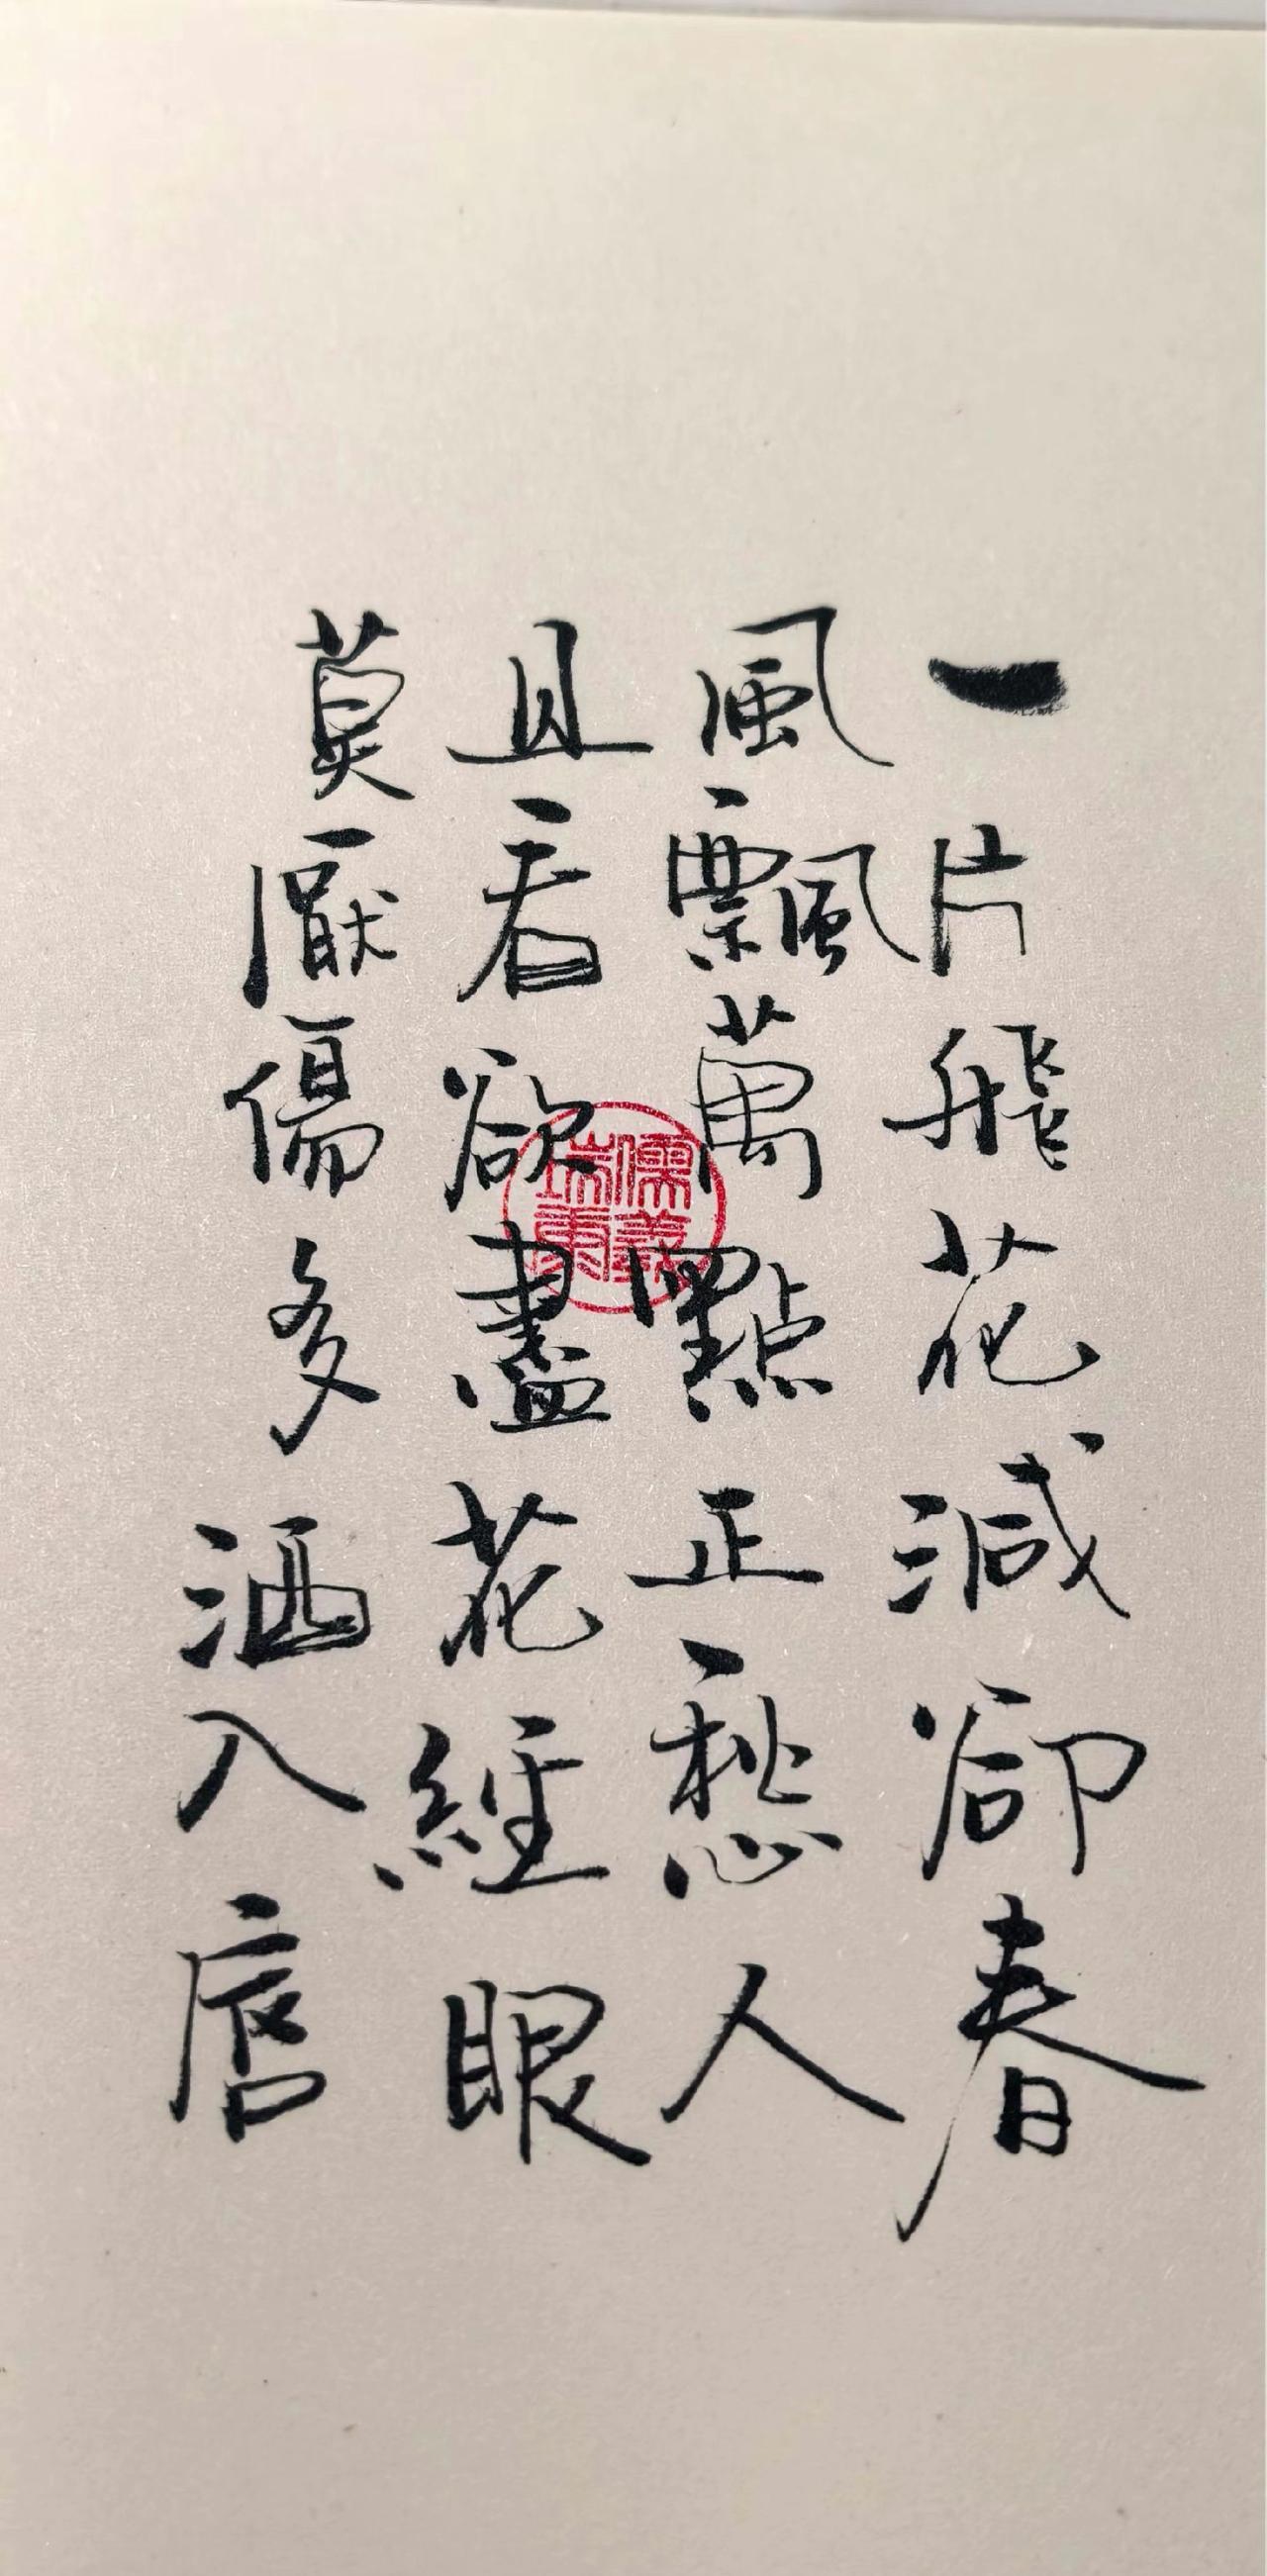 一片飛花減卻春
風飄萬點正愁人
且看欲盡花經眼
莫厭傷多酒入唇